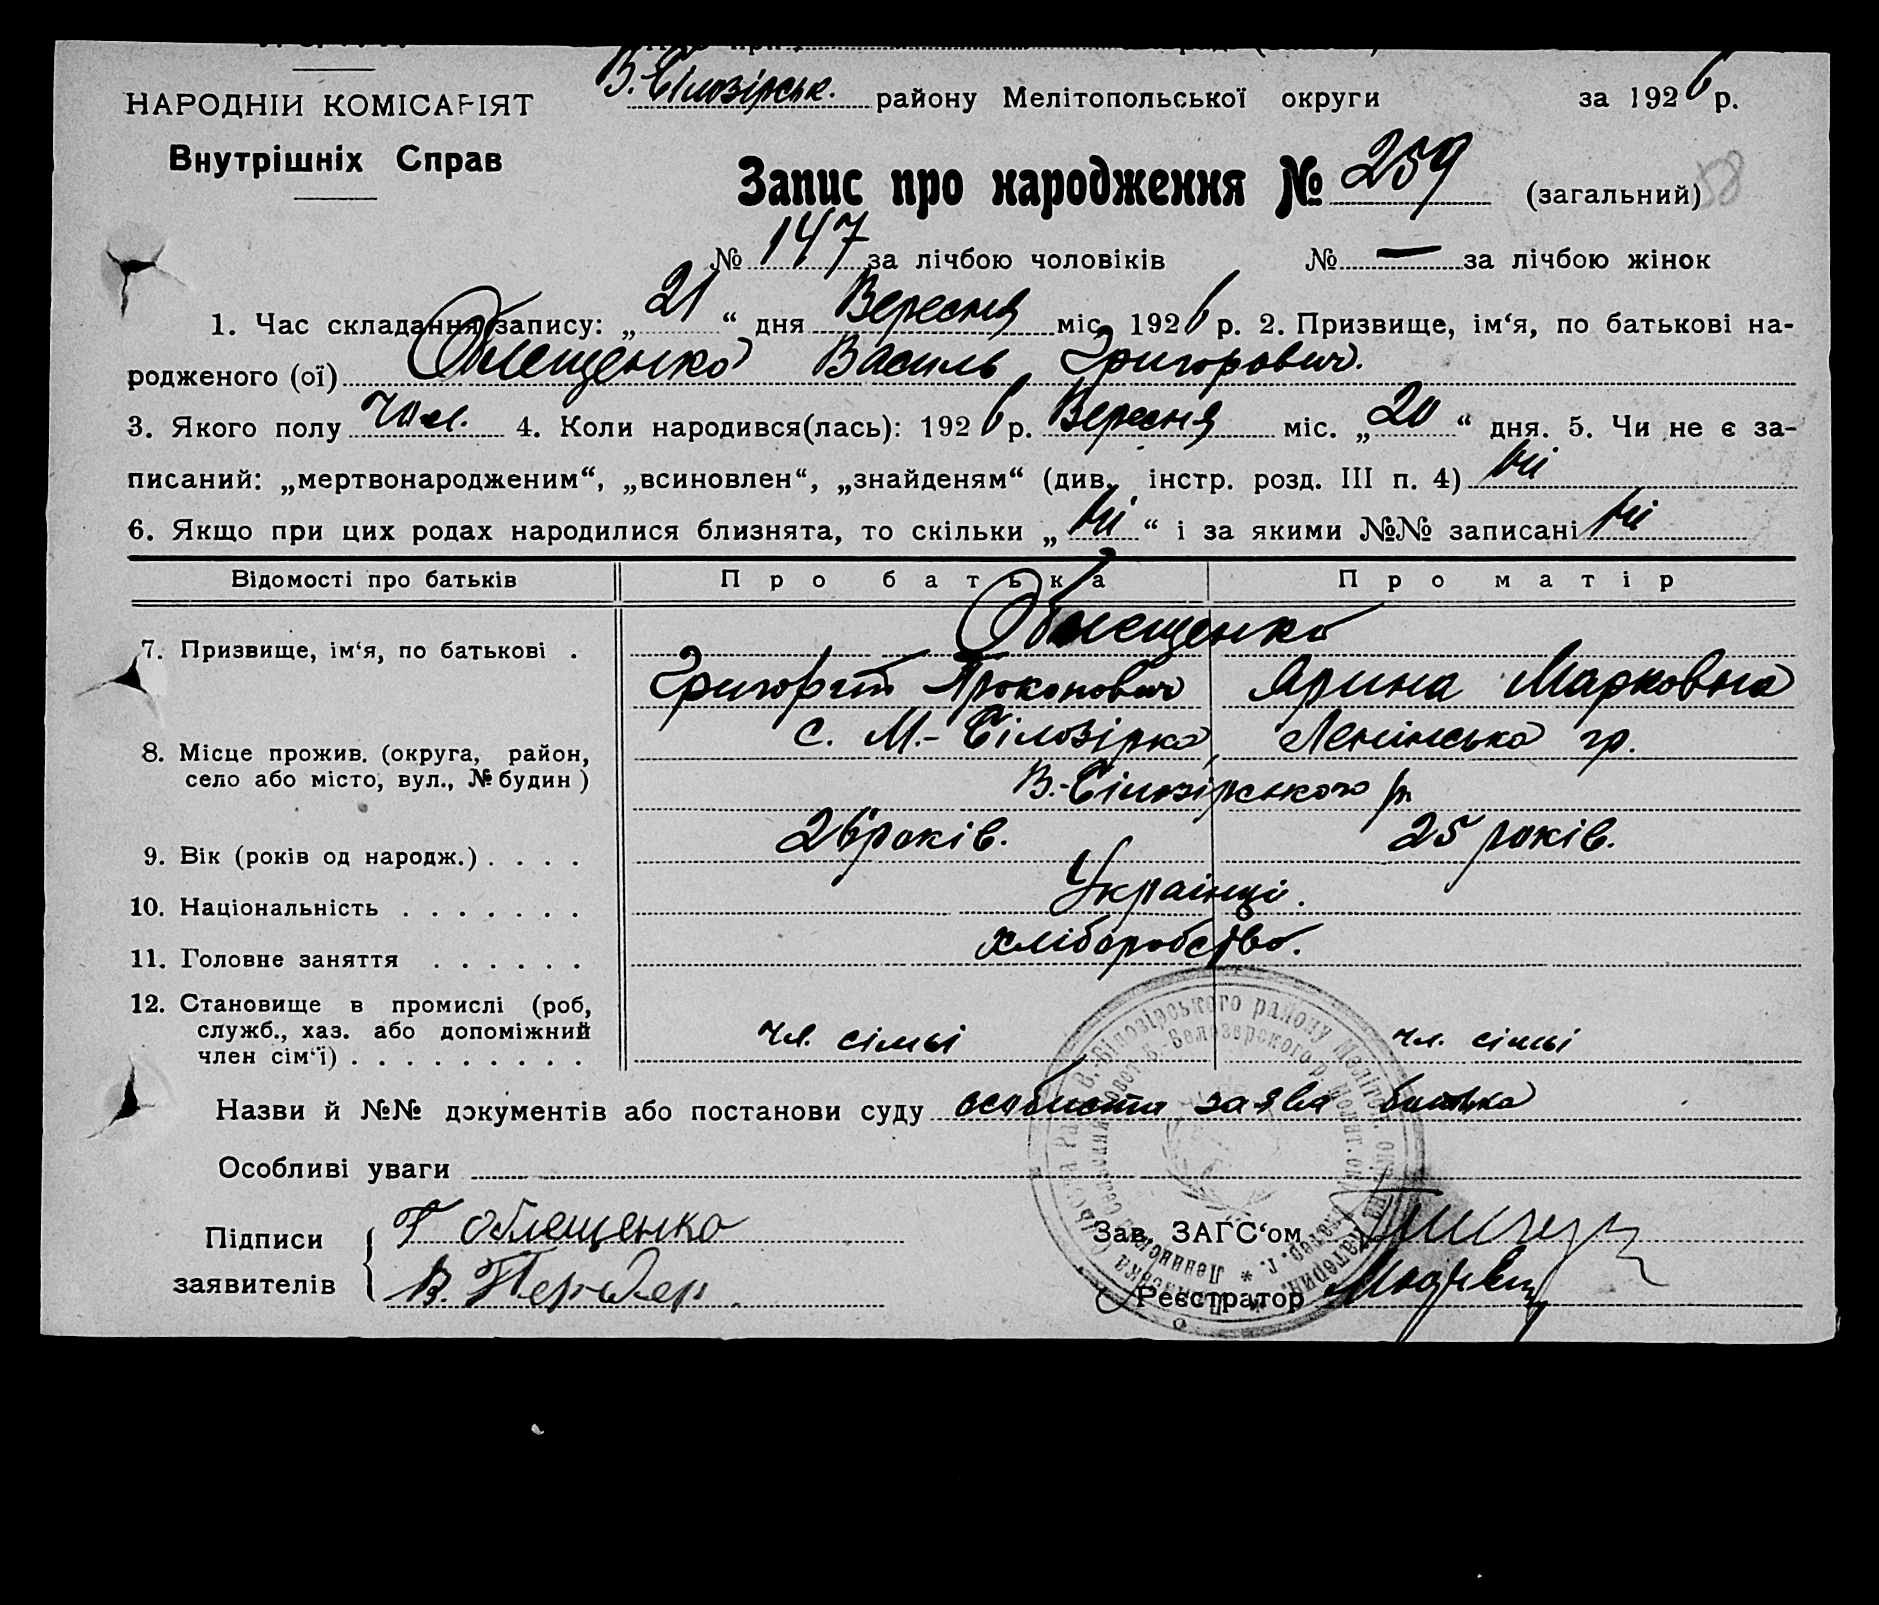 В.-Білозірськ. району Мелітопольської округи за 1926 р.
НАРОДНІЙ КОМІСАРІЯТ
Внутрішніх Справ
Запис про народження № 259 (загальний)
58
№ 147 за лічбою чоловіків № — за лічбою жінок
1. Час складання запису: „21“ дня Вересня міс. 1926 р. 2. Призвище, ім‘я, по батькові на-
родженого (ої) Облещенко Василь Григорович.
3. Якого полу чол. 4. Коли народився(лась): 1926 р. Вересня міс. „20“ дня. 5. Чи не є за-
писаний: „мертвонародженим“, „всиновлен“, „знайденям“ (див. інстр. розд. III п. 4) ні
6. Якщо при цих родах народилися близнята, то скільки „ні“ і за якими №№ записані ні
Відомості про батьків Про батька Про матір
Облещенко
7. Призвище, ім‘я, по батькові .
Григорій Прокопович Ярина Марковна
с. М.-Білозірка, Ленінська гр.
8. Місце прожив. (округа, район,
село або місто, вул., № будин )
В.-Білозірського р.
9. Вік (років од народж.) . . . . 26 років. 25 років.
10. Національність . . . . . . . Українці.
11. Головне заняття . . . . . . хліборобство.
12. Становище в промислі (роб,
служб., хаз. або допоміжний
член сім‘ї) . . . . . . . . . чл. сімьі чл. сімьі
Назви й №№ документів або постанови суду особиста заява батька
Особливі уваги
Підписи Г Облещенко Зав. ЗАГС‘ом
заявителів Реєстратор